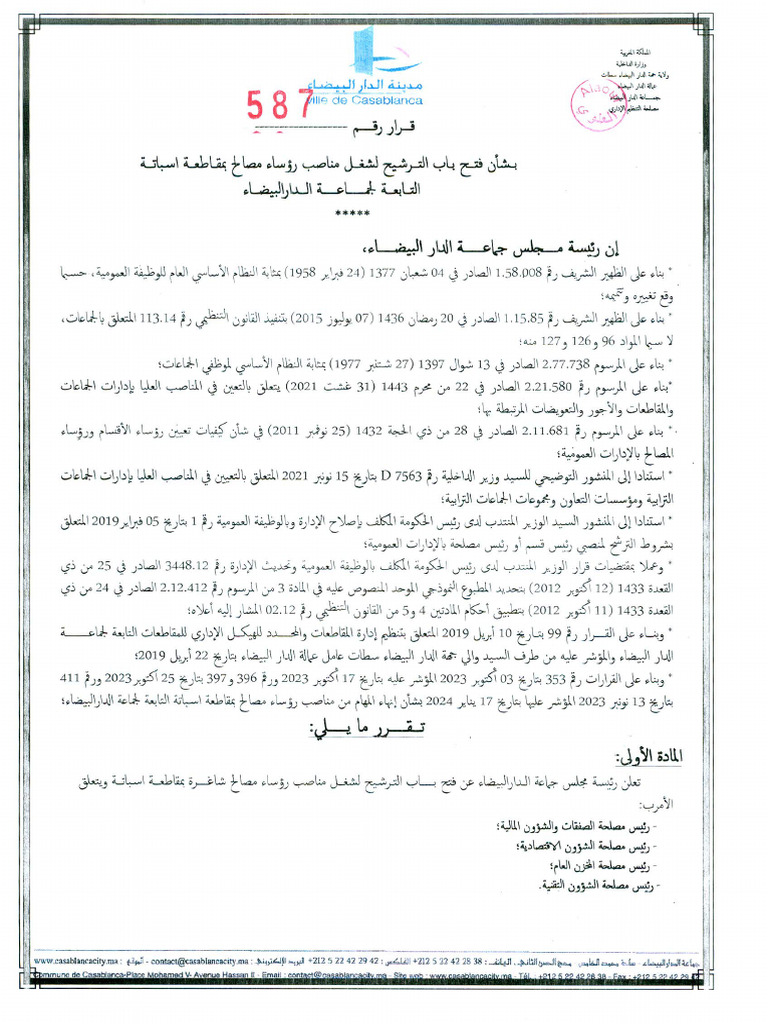 المملكة المغربية
وزارة الداخلية
ولاية جهة الدار البيضاء سطات
عمالة الدار البيضاء
جماعة الدار البيضاء
مصلحة التنظيم الإداري
مدينة الدار البيضاء
Ville de Casablanca
587
قرار رقم
بشأن فتح باب الترشيح لشغل مناصب رؤساء مصالح بمقاطعة اسباتة
التابعة لجماعة الدارالبيضاء
*****
إن رئيسة مجلس جماعة الدار البيضاء،
* بناء على الظهير الشريف رقم 1.58.008 الصادر في 04 شعبان 1377 (24 فبراير 1958) بمثابة النظام الأساسي العام للوظيفة العمومية، حسبما
وقع تغييره وتتميمه؛
* بناء على الظهير الشريف رقم 1.15.85 الصادر في 20 رمضان 1436 (07 يوليوز 2015) بتنفيذ القانون التنظيمي رقم 113.14 المتعلق بالجماعات،
لا سيما المواد 96 و126 و127 منه؛
* بناء على المرسوم 2.77.738 الصادر في 13 شوال 1397 (27 شتنبر 1977) بمثابة النظام الأساسي لموظفي الجماعات؛
*بناء على المرسوم رقم 2.21.580 الصادر في 22 من محرم 1443 (31 غشت 2021) يتعلق بالتعين في المناصب العليا بإدارات الجماعات
والمقاطعات والأجور والتعويضات المرتبطة بها؛
* بناء على المرسوم رقم 2.11.681 الصادر في 28 من ذي الحجة 1432 (25 نوفمبر 2011) في شأن كيفيات تعيين رؤساء الأقسام ورؤساء
المصالح بالإدارات العمومية؛
* استنادا إلى المنشور التوضيحي للسيد وزير الداخلية رقم D 7563 بتاريخ 15 نونبر 2021 المتعلق بالتعيين في المناصب العليا بإدارات الجماعات
الترابية ومؤسسات التعاون ومجموعات الجماعات الترابية؛
* استنادا إلى المنشور السيد الوزير المنتدب لدى رئيس الحكومة المكلف بإصلاح الإدارة وبالوظيفة العمومية رقم 1 بتاريخ 05 فبراير 2019 المتعلق
بشروط الترشح لمنصبي رئيس قسم أو رئيس مصلحة بالإدارات العمومية؛
* وعملا بمقتضيات قرار الوزير المنتدب لدى رئيس الحكومة المكلف بالوظيفة العمومية وتحديث الإدارة رقم 3448.12 الصادر في 25 من ذي
القعدة 1433 (12 أكتوبر 2012) بتحديد المطبوع النموذجي الموحد المنصوص عليه في المادة 3 من المرسوم رقم 2.12.412 الصادر في 24 من ذي
القعدة 1433 (11 أكتوبر 2012) بتطبيق أحكام المادتين 4 و5 من القانون التنظيمي رقم 02.12 المشار إليه أعلاه؛
* وبناء على القرار رقم 99 بتاريخ 10 أبريل 2019 المتعلق بتنظيم إدارة المقاطعات والمحدد للهيكل الإداري للمقاطعات التابعة لجماعة
الدار البيضاء والمؤشر عليه من طرف السيد والي جهة الدار البيضاء سطات عامل عمالة الدار البيضاء بتاريخ 22 أبريل 2019؛
* وبناء على القرارات رقم 353 بتاريخ 03 أكتوبر 2023 المؤشر عليه بتاريخ 17 أكتوبر 2023 ورقم 396 و397 بتاريخ 25 أكتوبر 2023 ورقم 411
بتاريخ 13 نونبر 2023 المؤشر عليها بتاريخ 17 يناير 2024 بشأن إنهاء المهام من مناصب رؤساء مصالح بمقاطعة اسباتة التابعة لجماعة الدارالبيضاء؛
تقرر ما يلي:
المادة الأولى:
تعلن رئيسة مجلس جماعة الدارالبيضاء عن فتح باب الترشيح لشغل مناصب رؤساء مصالح شاغرة بمقاطعة اسباتة ويتعلق
الأمرب:
- رئيس مصلحة الصفقات والشؤون المالية؛
- رئيس مصلحة الشؤون الاقتصادية؛
- رئيس مصلحة المخزن العام؛
- رئيس مصلحة الشؤون التقنية.
جماعة الدار البيضاء، ساحة محمد الخامس، شارع الحسن الثاني، الهاتف : 38 28 42 22 5 212+ الفاكس : 42 29 42 22 5 212+ البريد الإلكتروني : contact@casablancacity.ma - الموقع : www.casablancacity.ma
Commune de Casablanca-Place Mohamed V- Avenue Hassan II - Email : contact@casablancacity.ma - Site web : www.casablancacity.ma - Tél. : +212 5 22 42 28 38 - Fax : +212 5 22 42 29 42